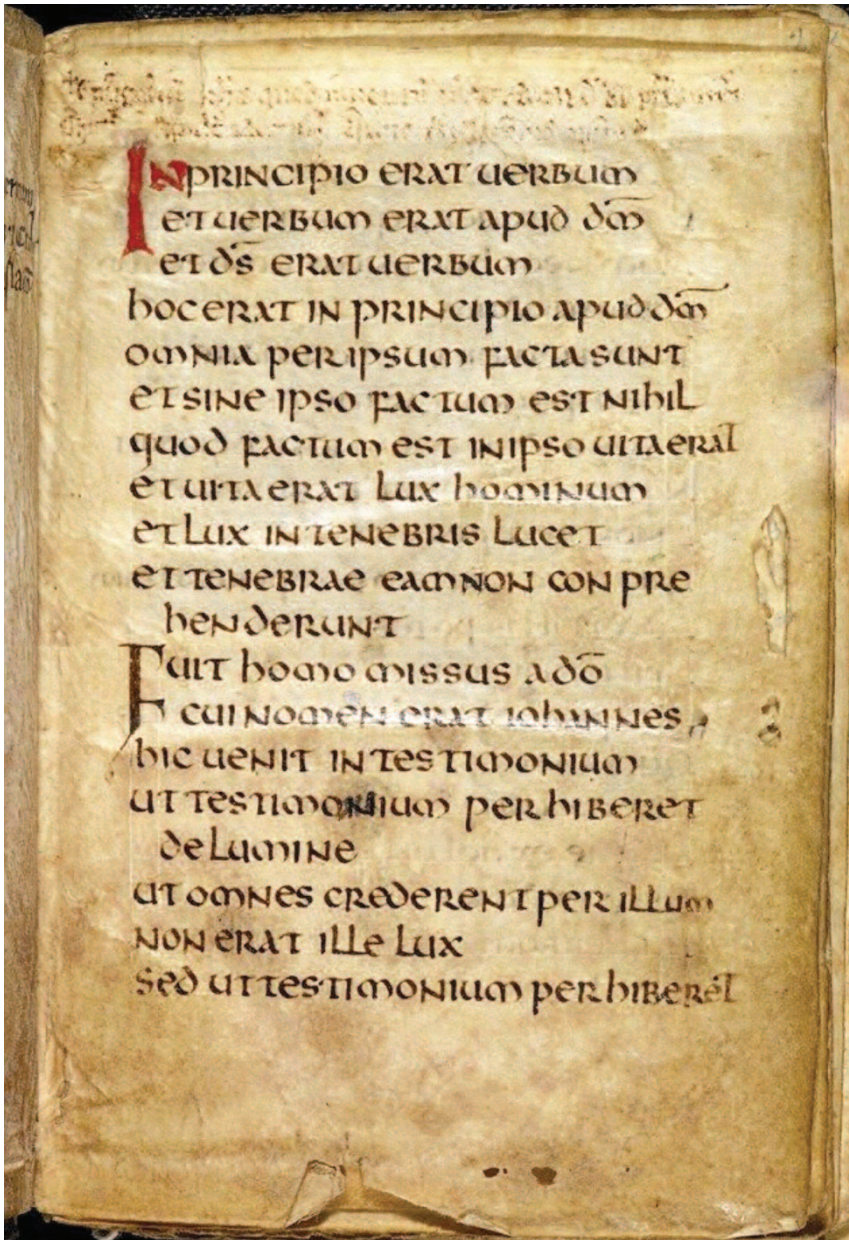 IN PRINCIPIO ERAT UERBUM
ET UERBUM ERAT APUD DM̄
ET DS̄ ERAT UERBUM
HOC ERAT IN PRINCIPIO APUD DM̄
OMNIA PER IPSUM FACTA SUNT
ET SINE IPSO FACTUM EST NIHIL
QUOD FACTUM EST IN IPSO UITA ERAT
ET UITA ERAT LUX HOMINUM
ET LUX IN TENEBRIS LUCET
ET TENEBRAE EAM NON CONPRE
HENDERUNT
FUIT HOMO MISSUS A DŌ
CUI NOMEN ERAT IOHANNES
HIC UENIT IN TESTIMONIUM
UT TESTIMONIUM PERHIBERET
DE LUMINE
UT OMNES CREDERENT PER ILLUM
NON ERAT ILLE LUX
SED UT TESTIMONIUM PERHIBERET